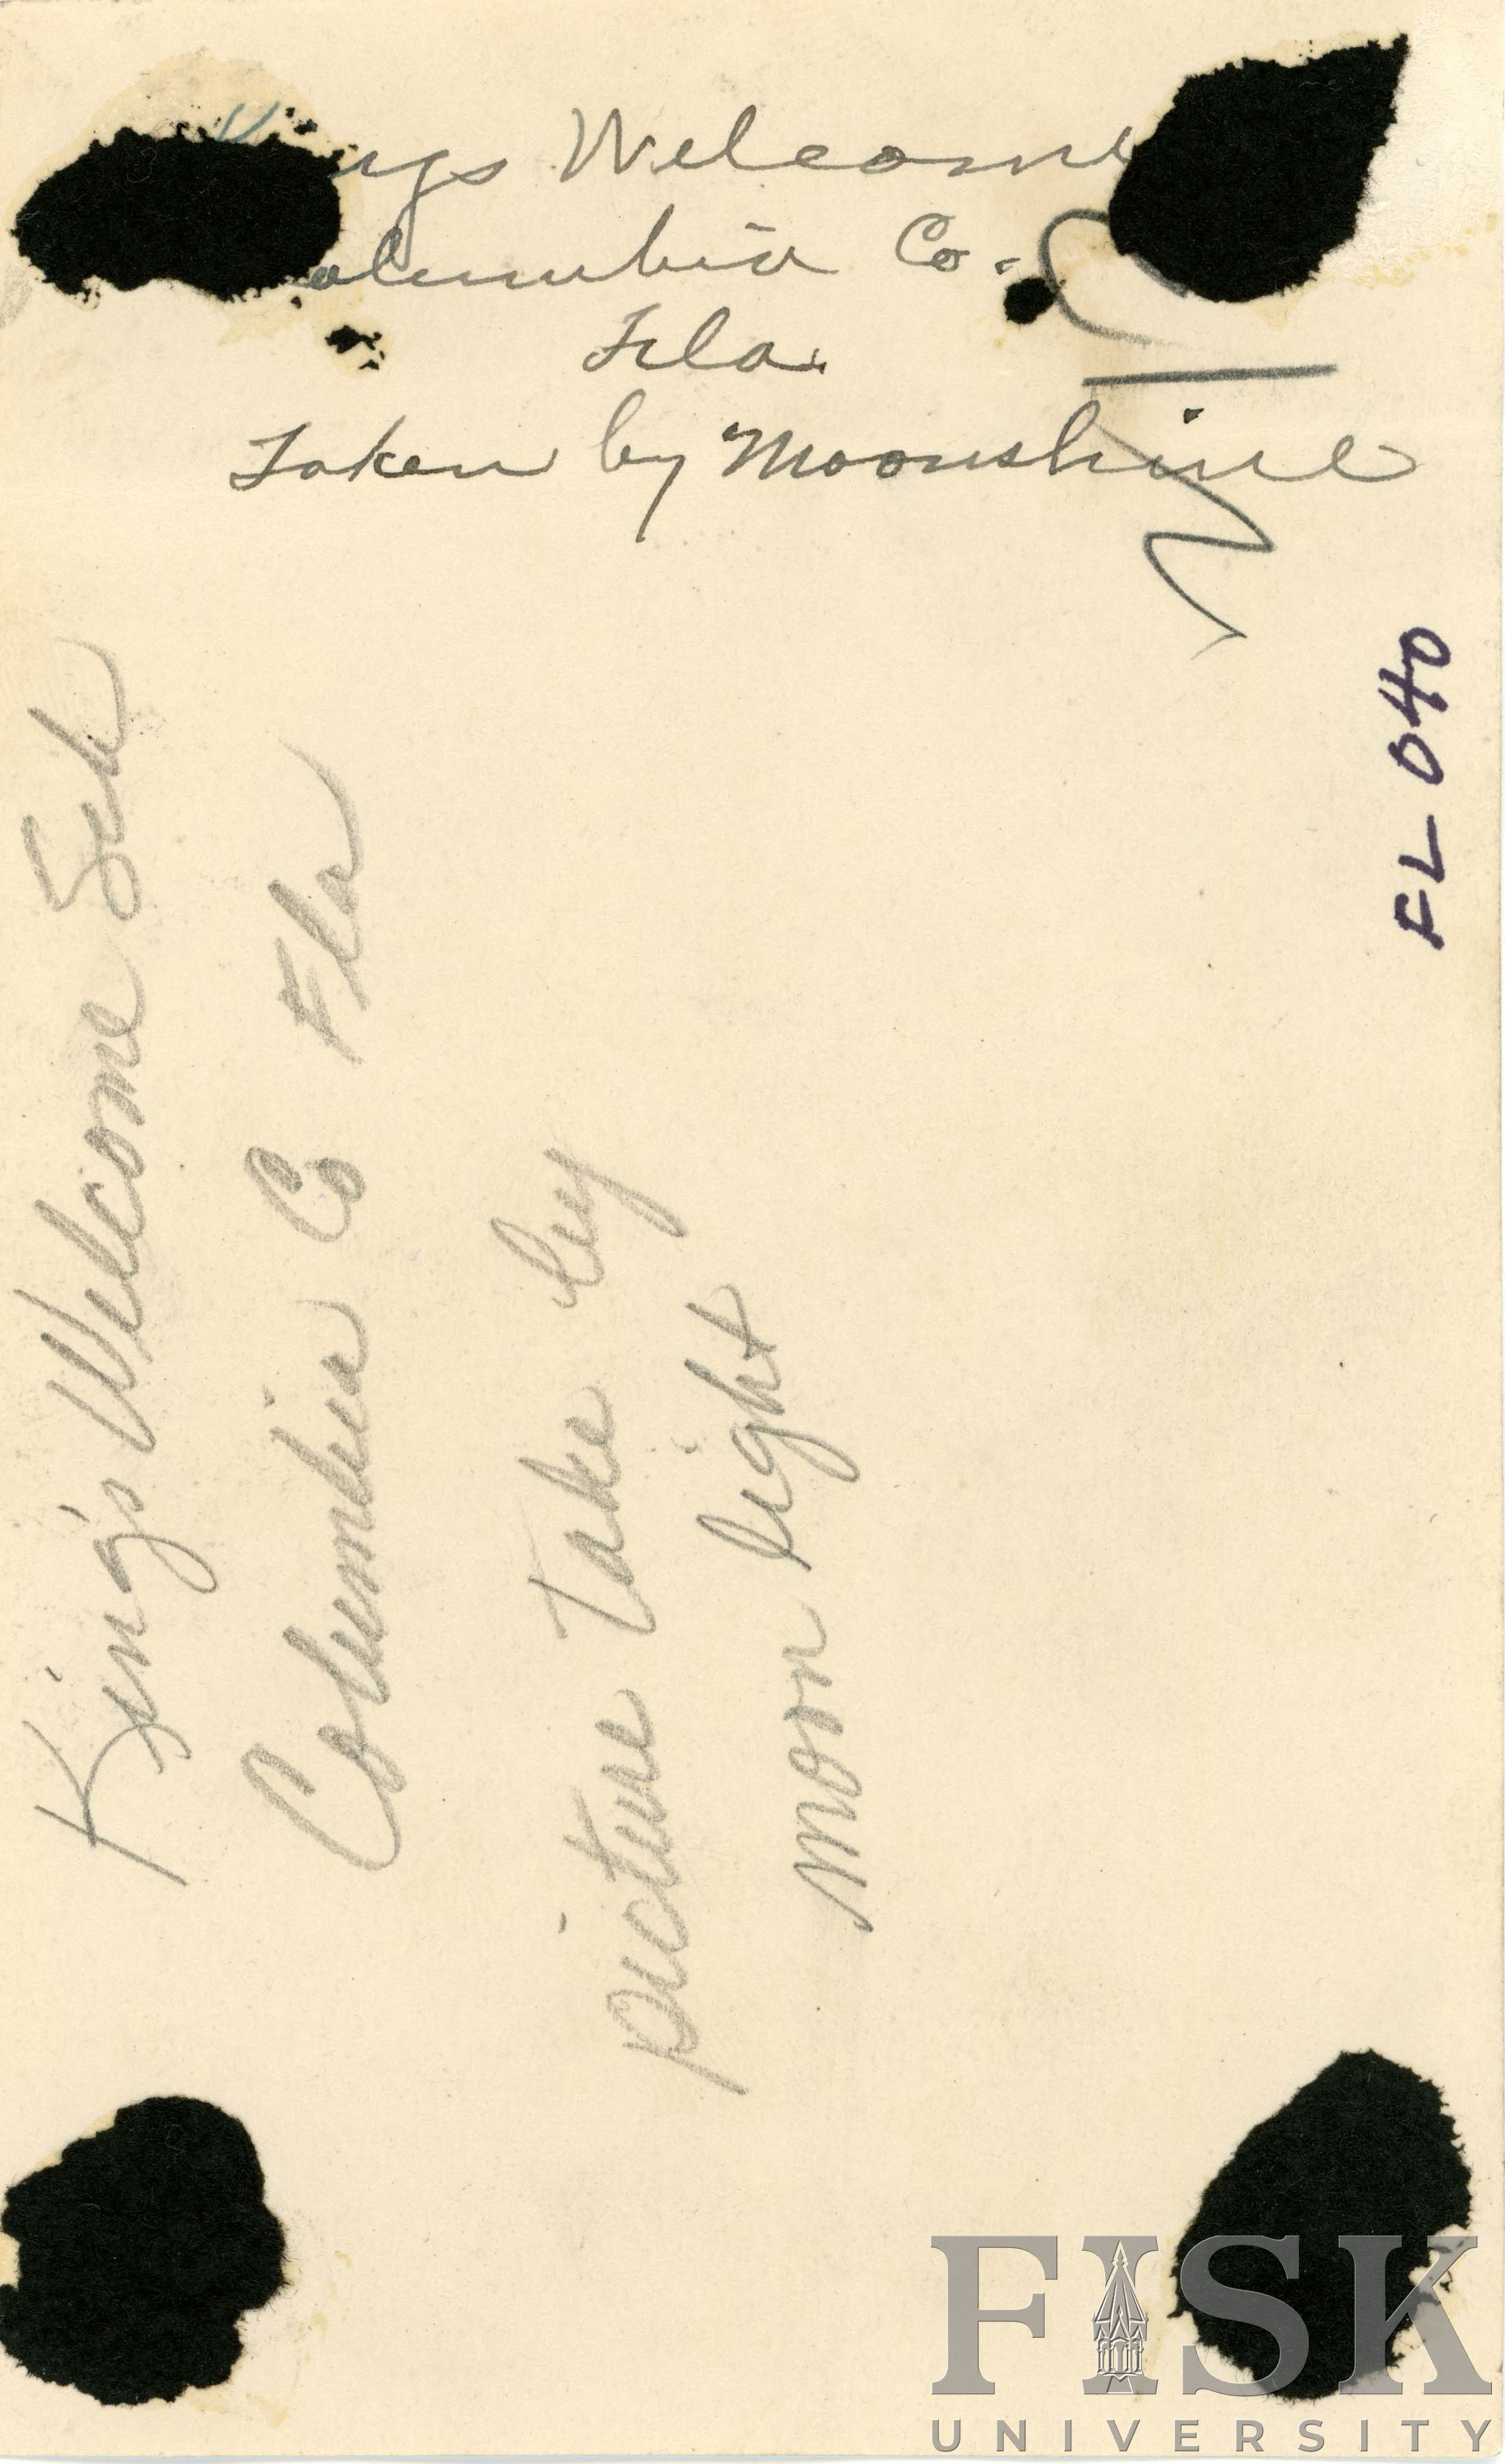 Kings Welcome
Columbia Co.
Fla.
Taken by Moonshine
FL 040
King's Welcome Sch
Columbia Co Fla
picture take by
moon light
FISK
UNIVERSITY